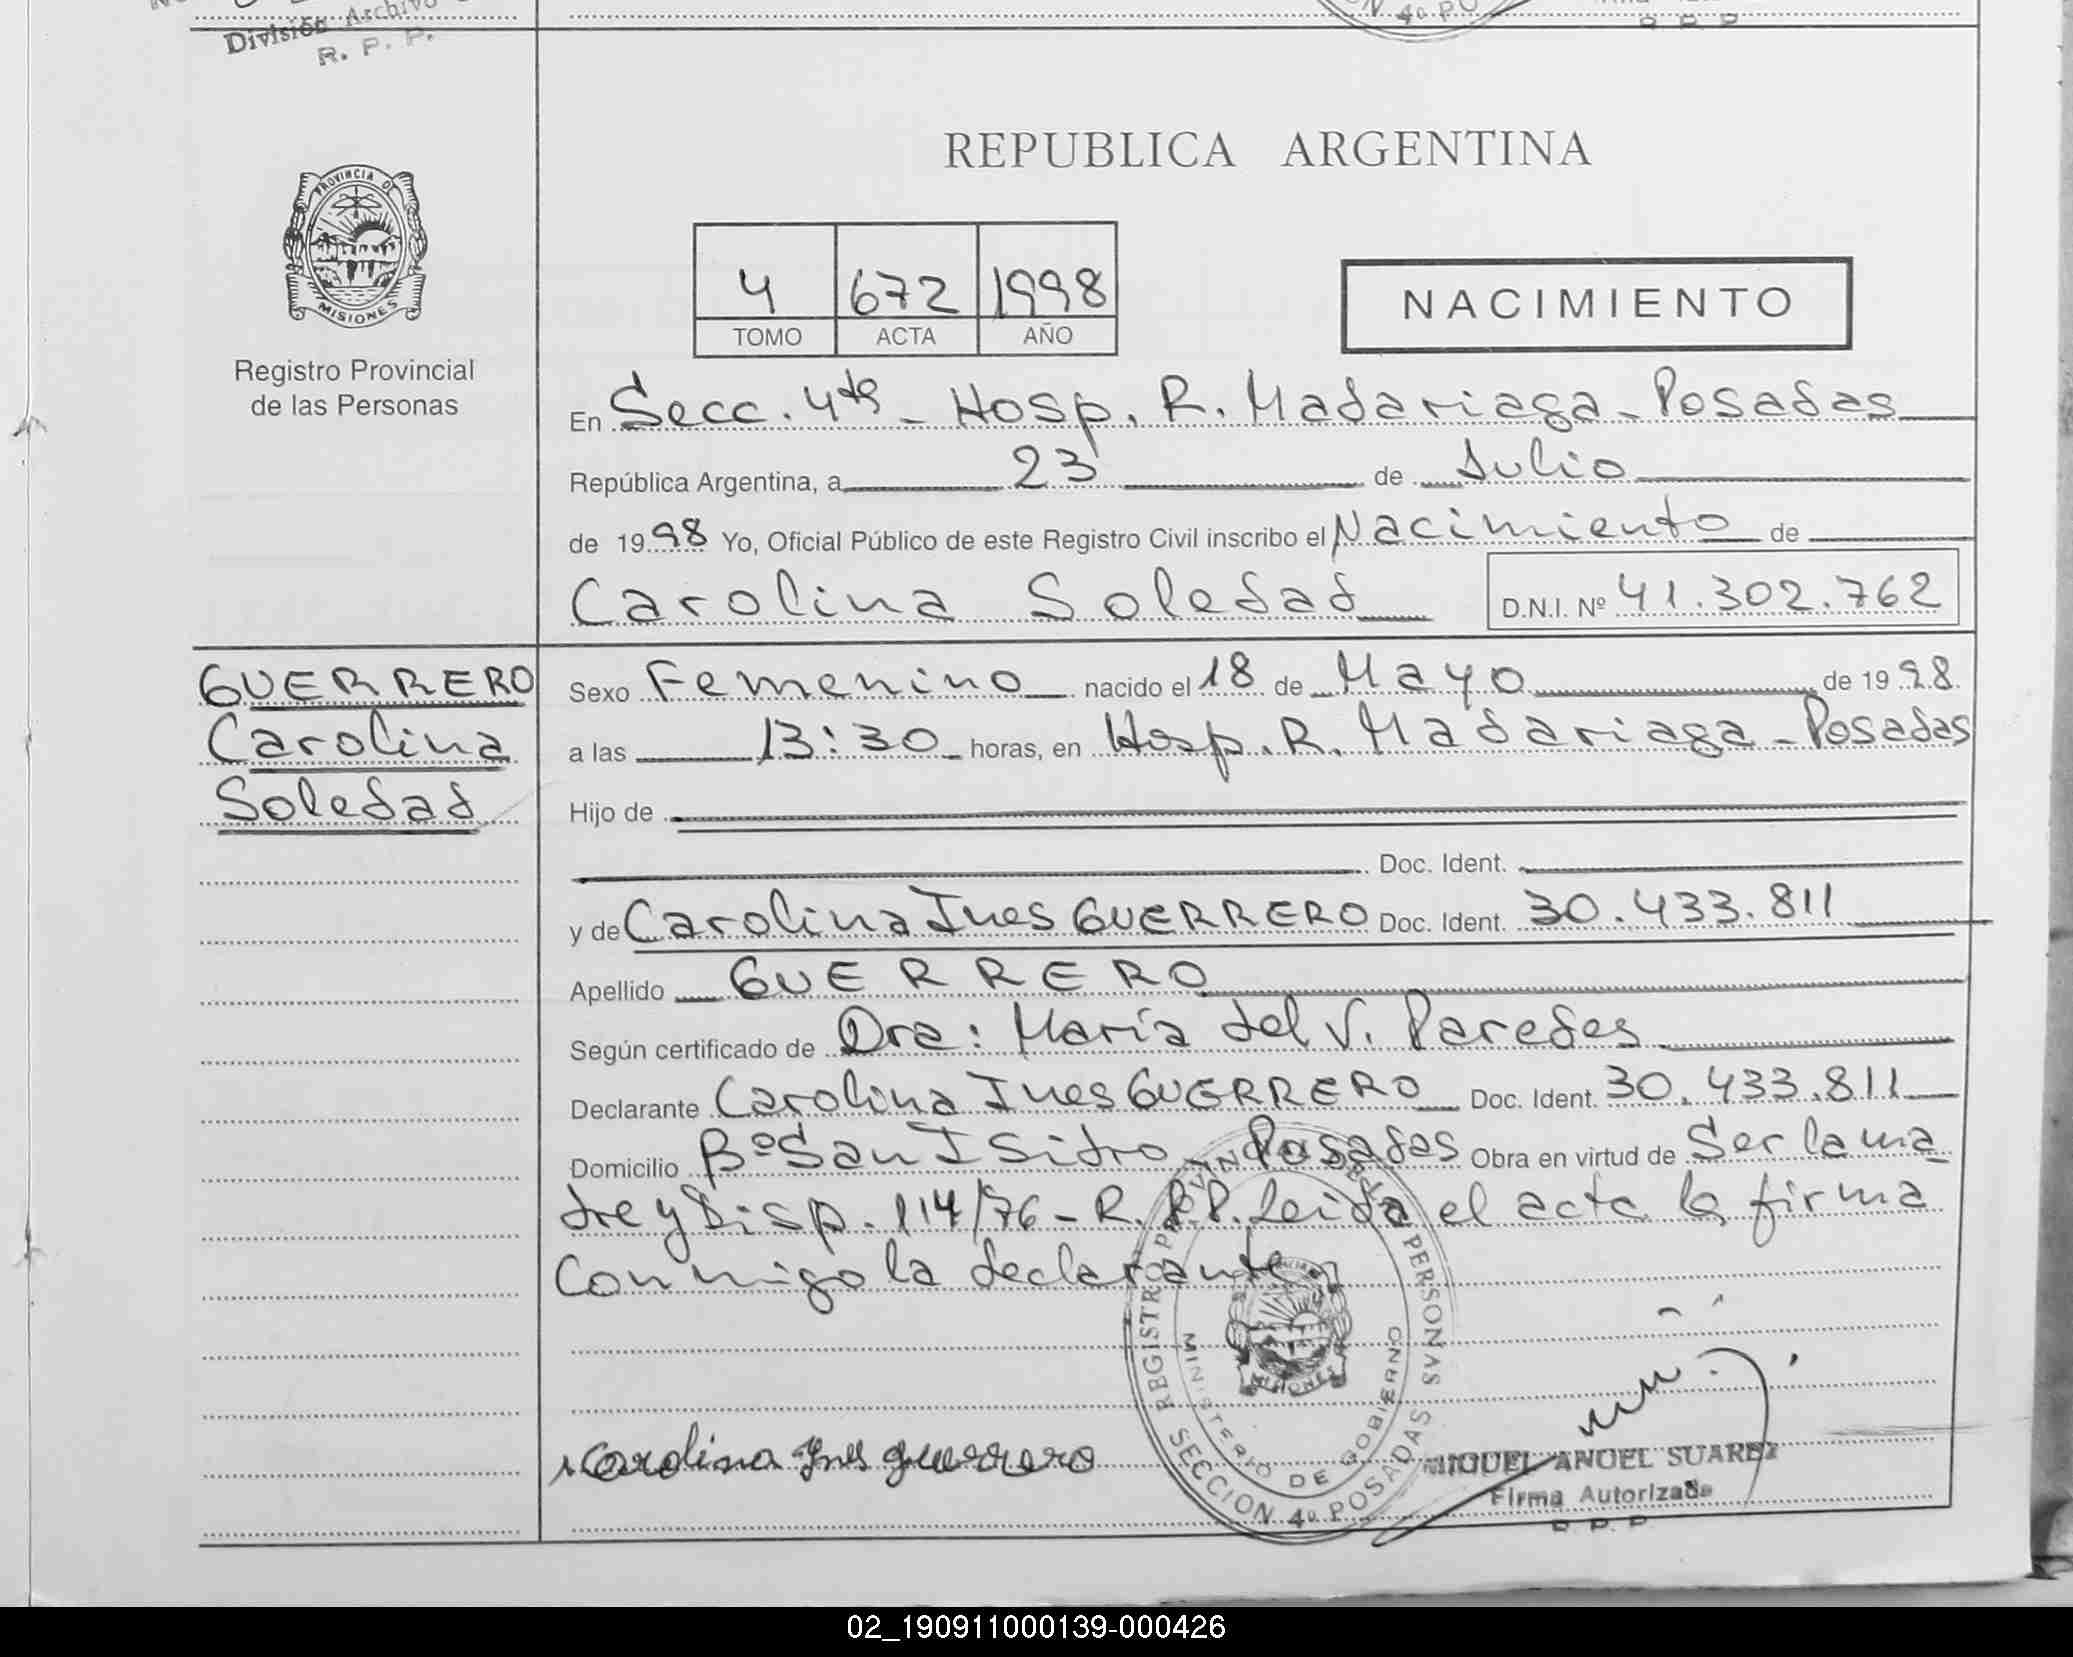 División Archivo
R. P. P.
N 4º PO
PROVINCIA DE
MISIONES
Registro Provincial
de las Personas
REPUBLICA ARGENTINA
4 672 1998
TOMO ACTA AÑO
NACIMIENTO
En Secc. 4ta - Hosp. R. Madariaga - Posadas
República Argentina, a 23 de Julio
de 1998 Yo, Oficial Público de este Registro Civil inscribo el Nacimiento de
Carolina Soledad D.N.I. Nº 41.302.762
GUERRERO
Carolina
Soledad
Sexo Femenino nacido el 18 de Mayo de 1998
a las 13:30 horas, en Hosp. R. Madariaga - Posadas
Hijo de
Doc. Ident.
y de Carolina Ines GUERRERO Doc. Ident. 30.433.811
Apellido GUERRERO
Según certificado de Dra: María del V. Paredes
Declarante Carolina Ines GUERRERO Doc. Ident. 30.433.811
Domicilio Bº San Isidro - Posadas Obra en virtud de Ser la ma
dre y Disp. 114/76 - R.P.P. Leida el acta la firma
conmigo la declarante
REGISTRO PROVINCIAL DE LAS PERSONAS
MINISTERIO DE GOBIERNO
MISIONES
SECCION 4º POSADAS
Carolina Ines Guerrero
MIGUEL ANGEL SUAREZ
Firma Autorizada
R. P. P.
02_190911000139-000426